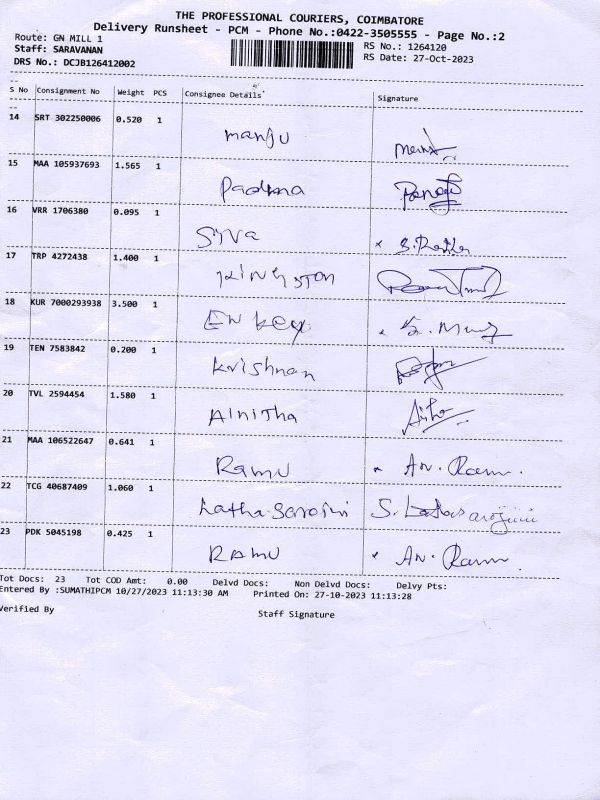 THE PROFESSIONAL COURIERS, COIMBATORE
Delivery Runsheet - PCM - Phone No.:0422-3505555 - Page No.:2
Route: GN MILL 1
Staff: SARAVANAN
DRS No.: DCJB126412002
RS No.: 1264120
RS Date: 27-Oct-2023
S No Consignment No Weight PCS Consignee Details Signature
14 SRT 302250006 0.520 1 manju
15 MAA 105937693 1.565 1 Padma
16 VRR 1706380 0.095 1 Siva
17 TRP 4272438 1.400 1 KINGSTON
18 KUR 7000293938 3.500 1
19 TEN 7583842 0.200 1 Krishnan
20 TVL 2594454 1.580 1
21 MAA 106522647 0.641 1 RAMU
22 TCG 40687409 1.060 1 Latha Sarojini
23 PDK 5045198 0.425 1 RAMU
Tot Docs: 23 Tot COD Amt: 0.00 Delvd Docs: Non Delvd Docs: Delvy Pts:
Entered By :SUMATHIPCM 10/27/2023 11:13:30 AM Printed On: 27-10-2023 11:13:28
Verified By Staff Signature